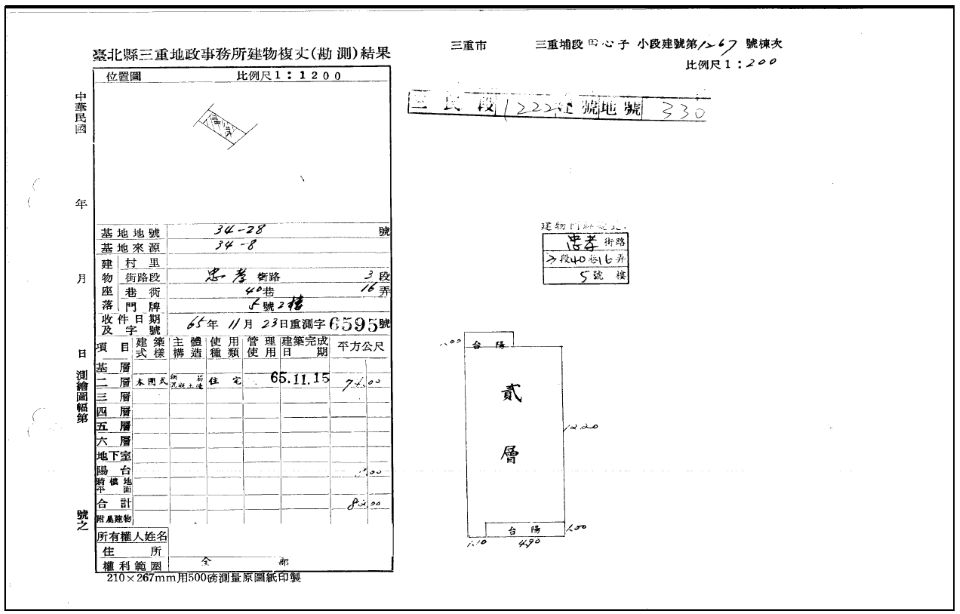 臺北縣三重地政事務所建物複丈(勘測)結果
三重市 三重埔段 田心子 小段建號第1267號棟次
比例尺1:200
位置圖 比例尺1:1200
三民段 1222建號地號 330
中華民國 年 月 日 測繪圖幅第 號之
基地地號 34-28 號
基地來源 34-8
建物座落
村里
街路段 忠孝街路 3段
巷衖 40巷 16弄
門牌 5號2樓
收件日期及字號 65年11月23日重測字6595號
忠孝街路
段40巷16弄
5號 樓
項目 建築式樣 主體構造 使用種類 管理使用 建築完成日期 平方公尺
基層
二層 本國式 住宅 65.11.15
三層
四層
五層
六層
地下室
陽台
騎樓地平面
合計
附屬建物
所有權人姓名
住所
權利範圍 全部
210×267mm用500磅測量原圖紙印製
1.00 台陽
貳層
12.20
台陽 1.00
1.10 4.90